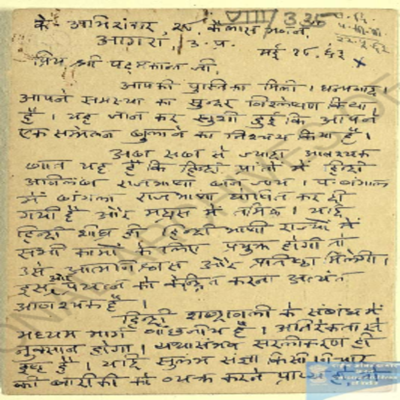 VIII/325
के. आभिशंकर, २०, कैलास भवन
आगरा, उ.प्र.
मई १८. ६३
प्रिय श्री पद्मकान्त जी,
आपकी पुस्तिका मिली। धन्यवाद।
आपने समस्या का सुन्दर विश्लेषण किया
है। यह जान कर खुशी हुई कि आपने
एक सम्मेलन बुलाने का निश्चय किया है।
अब सब से ज्यादा आवश्यक
बात यह है कि हिन्दी प्रान्तों में हिन्दी
अविलंब राजभाषा बन जाय। प. बंगाल
में बंगला राजभाषा घोषित कर दी
गयी है और मद्रास में तमिल। यदि
हिन्दी शीघ्र ही हिन्दी भाषी राज्यों में
सभी कामों के लिए प्रयुक्त होगी तो
उसे आत्मविश्वास और प्रतिष्ठा मिलेगी।
इसी ओर प्रयत्न को केन्द्रित करना अत्यंत
आवश्यक है।
हिन्दी शब्दावली के संबंध में
मध्यम मार्ग वांछनीय है। अतिरेकता से
नुकसान होगा। यथासंभव सरलीकरण ही
इष्ट है। यदि सुलभ संज्ञा किसी विचार
की बारीकी को व्यक्त करने प्राप्य हो, तो